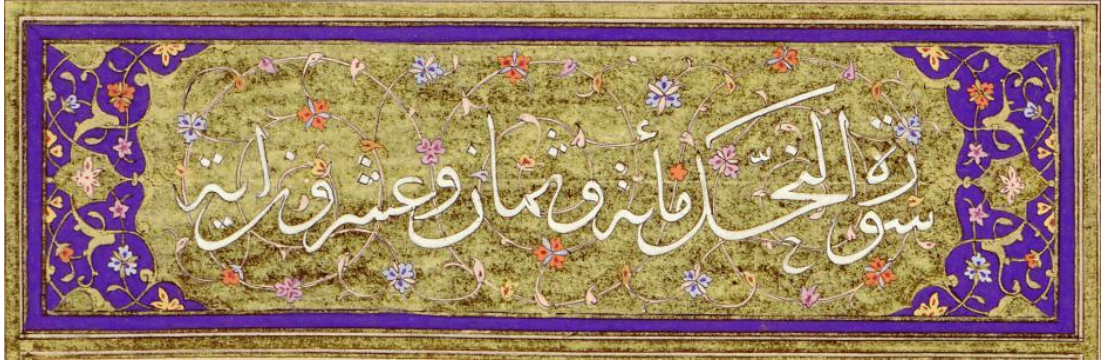 سورة النحل مائة وثمان وعشرون اية